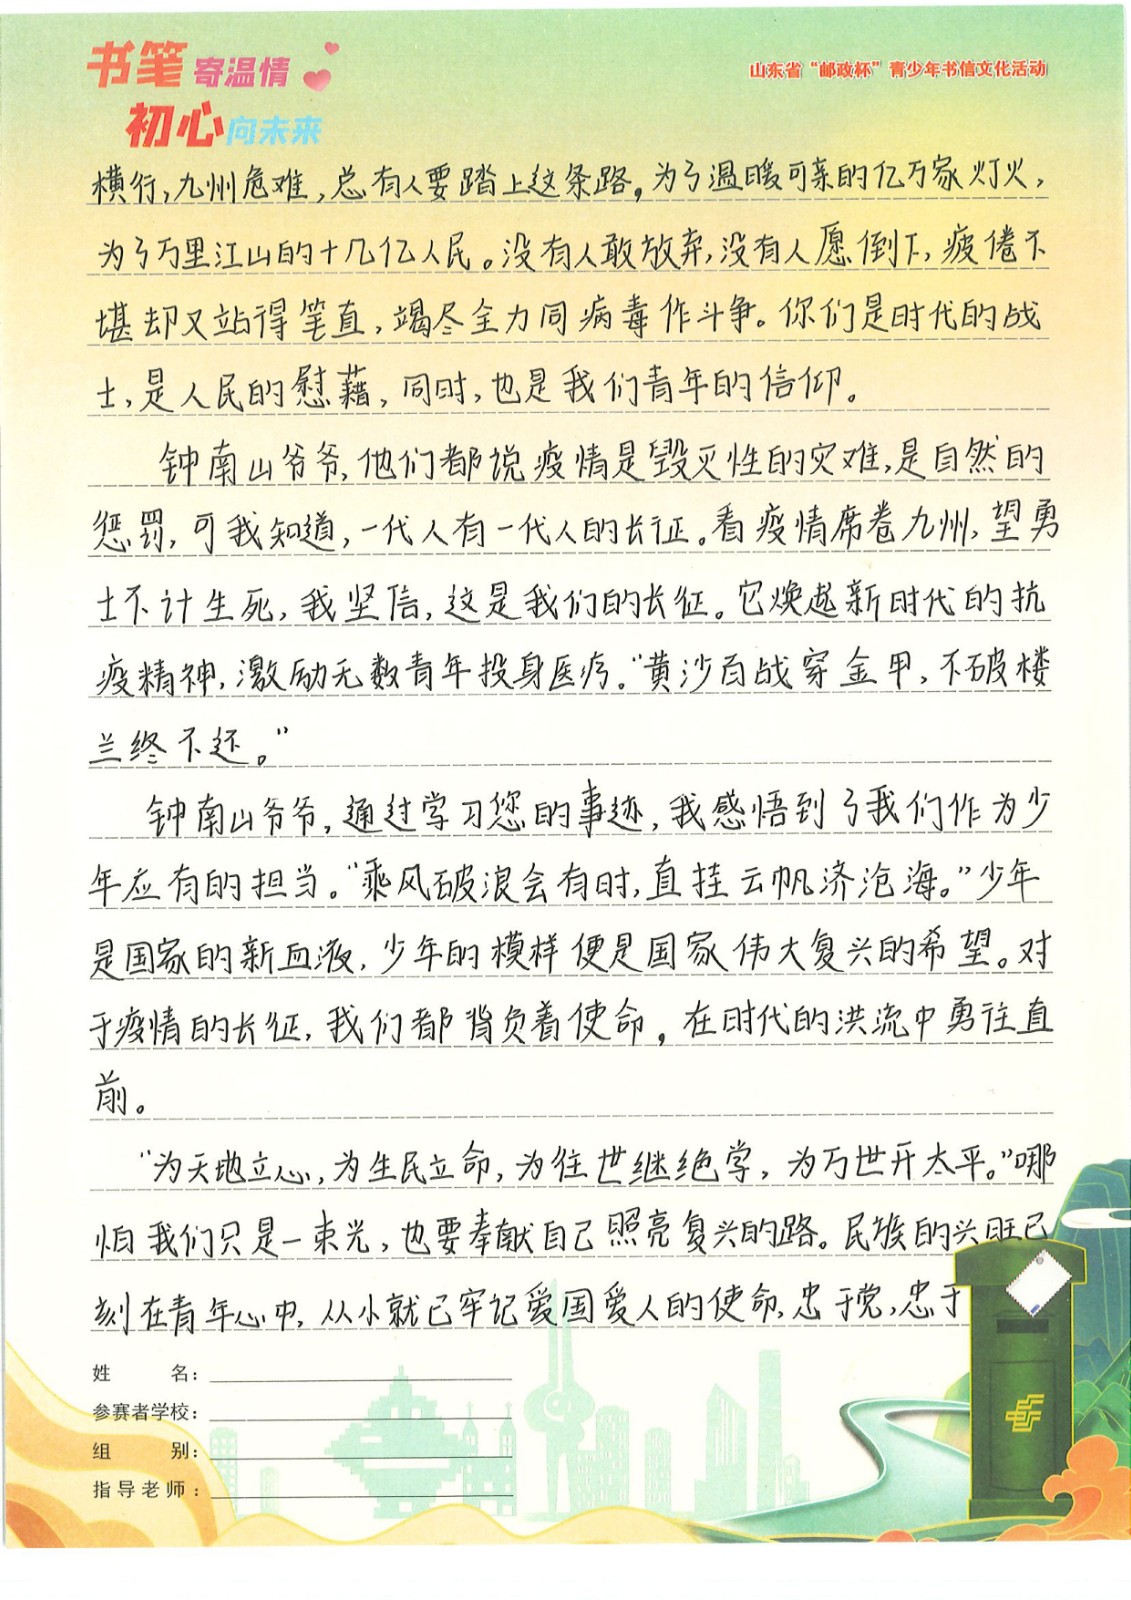 书笔寄温情
初心向未来
山东省“邮政杯”青少年书信文化活动
横行,九州危难,总有人要踏上这条路,为了温暖可亲的亿万家灯火,
为了万里江山的十几亿人民。没有人敢放弃,没有人愿倒下,疲倦不
堪却又站得笔直,竭尽全力同病毒作斗争。你们是时代的战
士,是人民的慰藉,同时,也是我们青年的信仰。
钟南山爷爷,他们都说疫情是毁灭性的灾难,是自然的
惩罚,可我知道,一代人有一代人的长征。看疫情席卷九州,望勇
士不计生死,我坚信,这是我们的长征。它焕起新时代的抗
疫精神,激励无数青年投身医疗。“黄沙百战穿金甲,不破楼
兰终不还。”
钟南山爷爷,通过学习您的事迹,我感悟到了我们作为少
年应有的担当。“乘风破浪会有时,直挂云帆济沧海。”少年
是国家的新血液,少年的模样便是国家伟大复兴的希望。对
于疫情的长征,我们都背负着使命,在时代的洪流中勇往直
前。
“为天地立心,为生民立命,为往世继绝学,为万世开太平。”哪
怕我们只是一束光,也要奉献自己照亮复兴的路。民族的兴旺已
刻在青年心中,从小就已牢记爱国爱人的使命,忠于党,忠于
姓名:
参赛者学校:
组别:
指导老师: